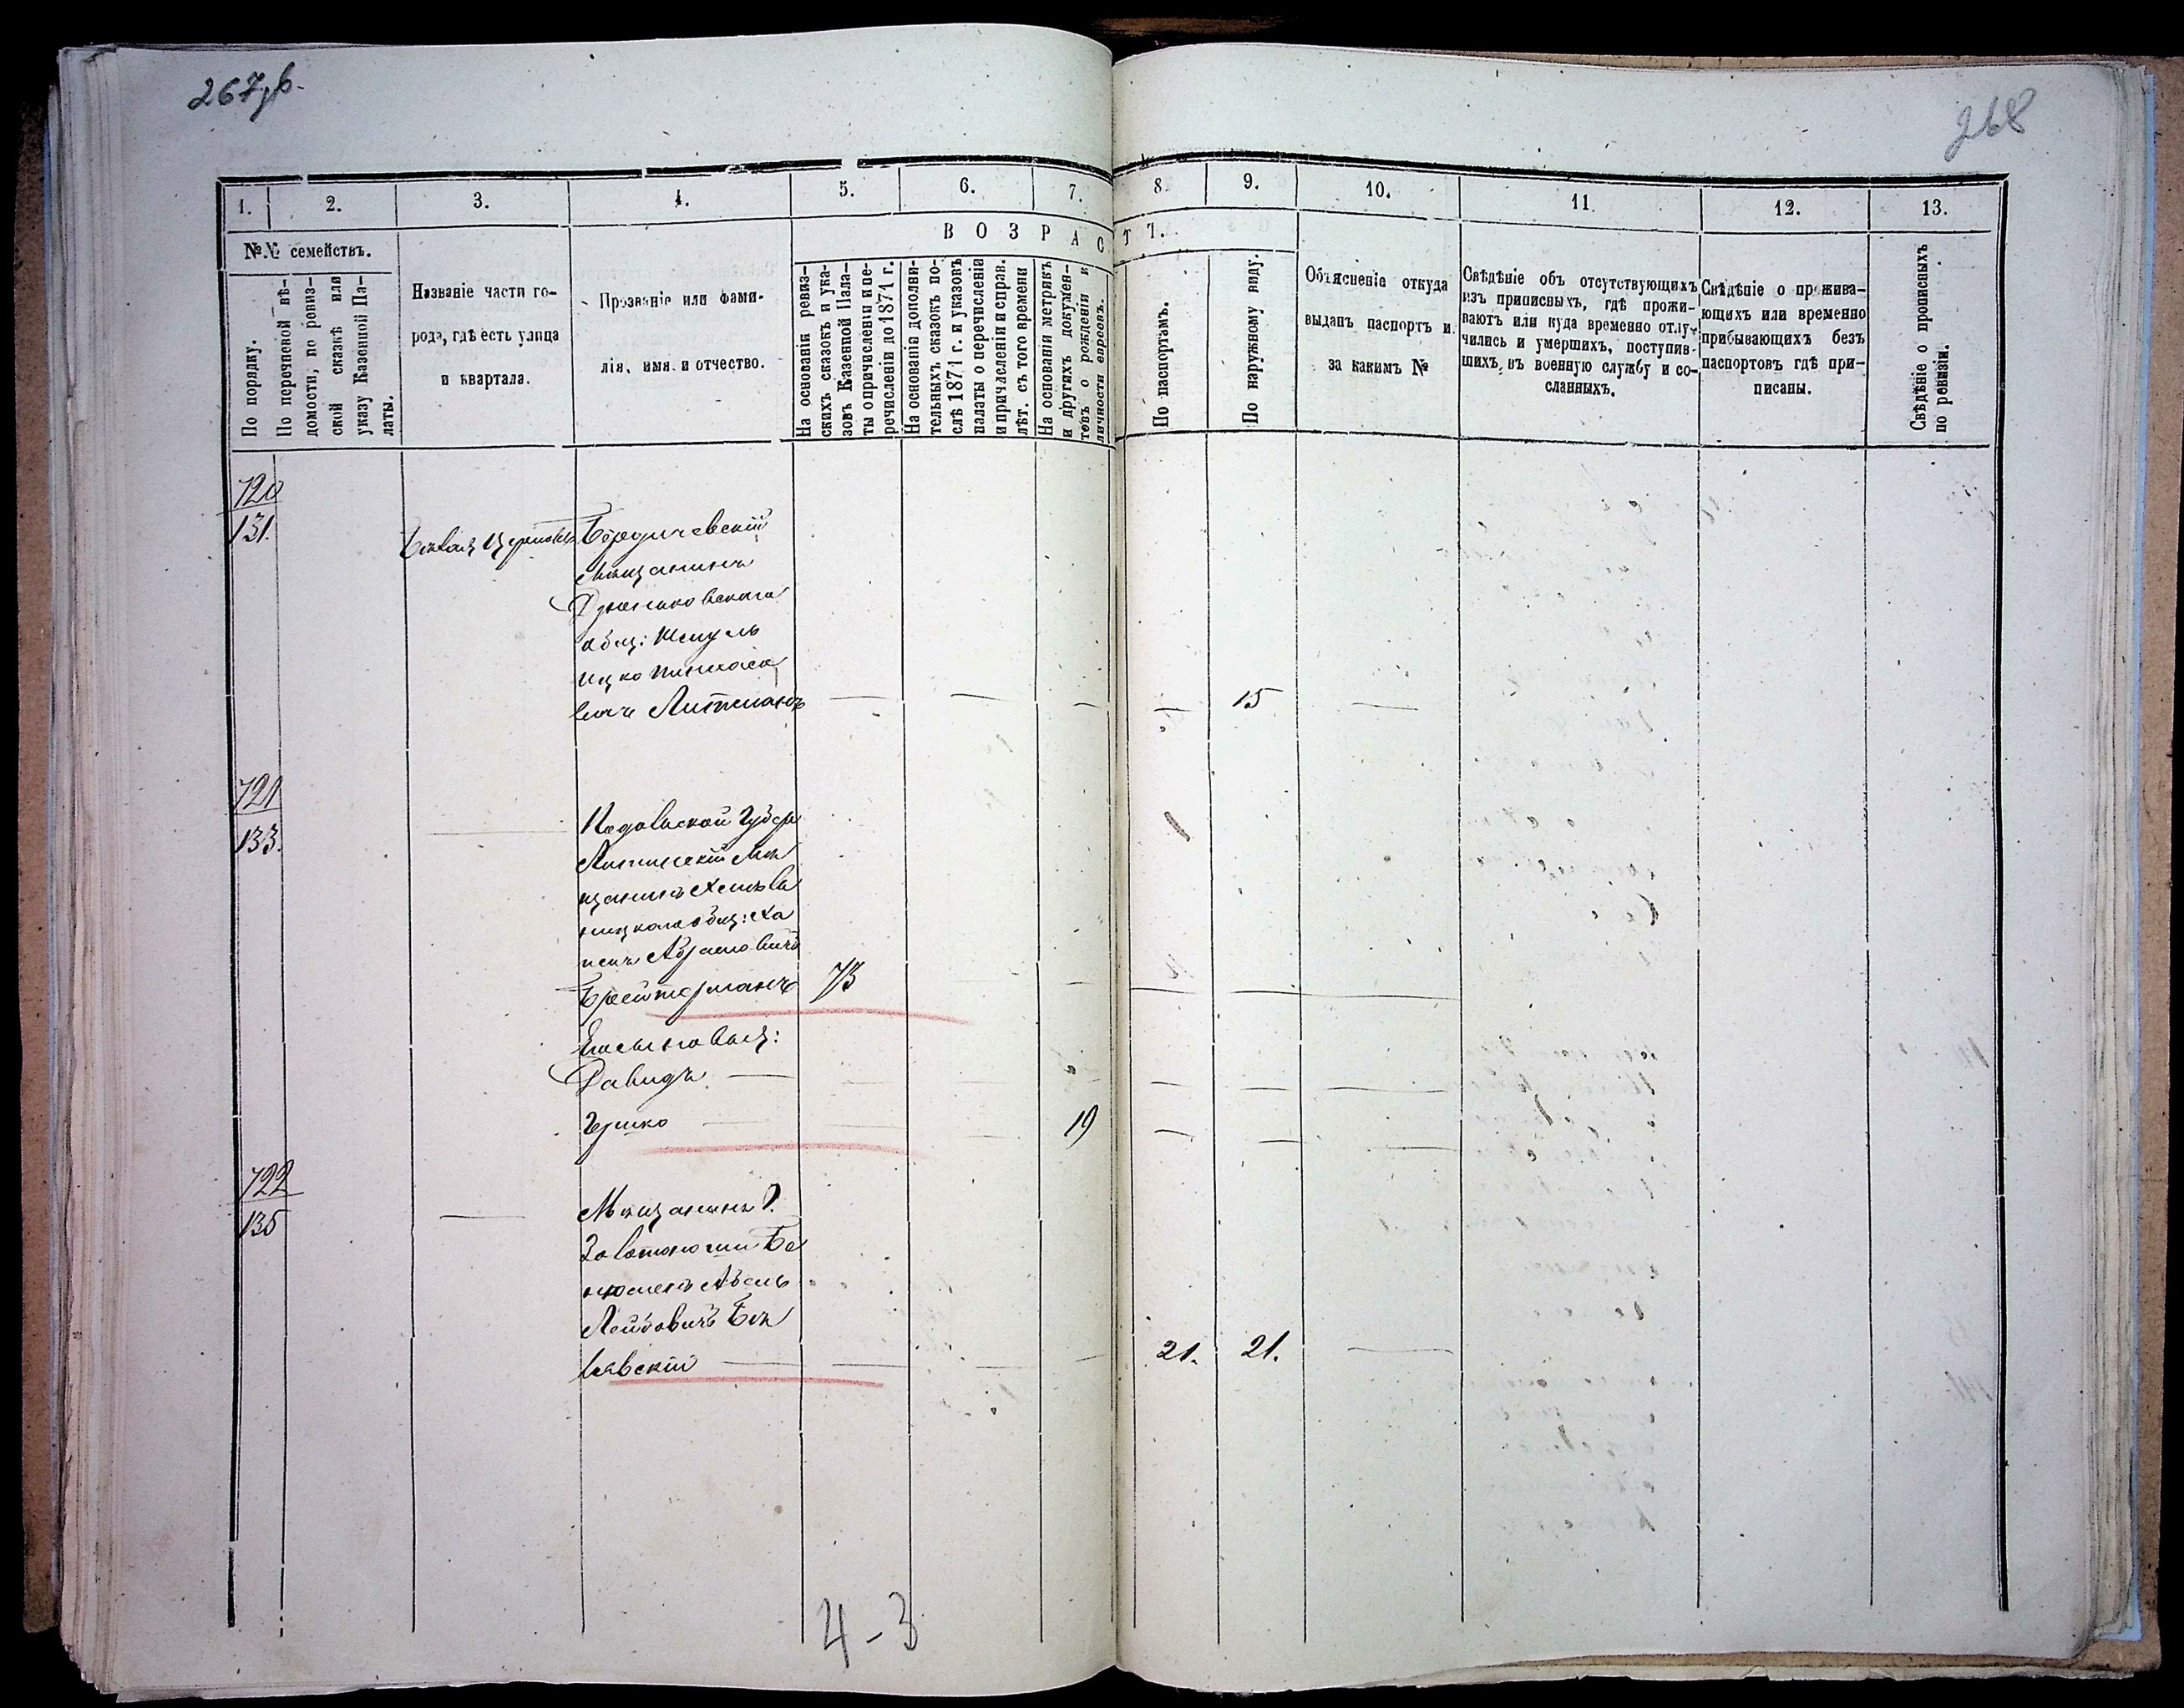 267об.
268
1.
2.
3.
4.
5.
6.
7.
8.
9.
10.
11
12.
13.
№№ семействъ.
ВОЗРАСТЪ.
По порядку.
По перечневой вѣ-
домости, по ревиз-
ской сказкѣ или
указу Казенной Па-
латы.
Названіе части го-
рода, гдѣ есть улица
и квартала.
Прозваніе или фами-
лія, имя и отчество.
На основаніи ревиз-
скихъ сказокъ и ука-
зовъ Казенной Пала-
ты о причисленіи и пе-
речисленіи до 1871 г.
На основаніи дополни-
тельныхъ сказокъ по-
слѣ 1871 г. и указовъ
палаты о перечисленіи
и причисленіи и справ.
лѣт. съ того времени
На основаніи метрикъ
и другихъ докумен-
товъ о рожденіи и
личности евреевъ.
По паспортамъ.
По наружному виду.
Объясненіе откуда
выданъ паспортъ и
за какимъ №
Свѣдѣніе объ отсутствующихъ
изъ приписныхъ, гдѣ прожи-
ваютъ или куда временно отлу-
чились и умершихъ, поступив-
шихъ въ военную службу и со-
сланныхъ.
Свѣдѣніе о прожива-
ющихъ или временно
прибывающихъ безъ
паспортовъ гдѣ при-
писаны.
Свѣдѣніе о прописныхъ
по ревизіи.
720
131.
Бердичевскій
мѣщанинъ
Дзюньковскаго
общ: Шмуль
Ицко Пинхасо
вичъ Литманъ — — — — 15 —
721
133.
Подольской Губер
Литинскій мѣ
щанинъ Хмѣль
ницкаго общ: Ха
Абрамовичъ
Брейтерманъ 73 — — — —
Его сыновья:
Давидъ — — — — — —
Гершко — — — 19 — — —
722
135
— Мѣщанинъ г.
Золотоноши Бе
Абель
Лейбовичъ Бѣ
лявскій — — — — 21. 21. —
4-3